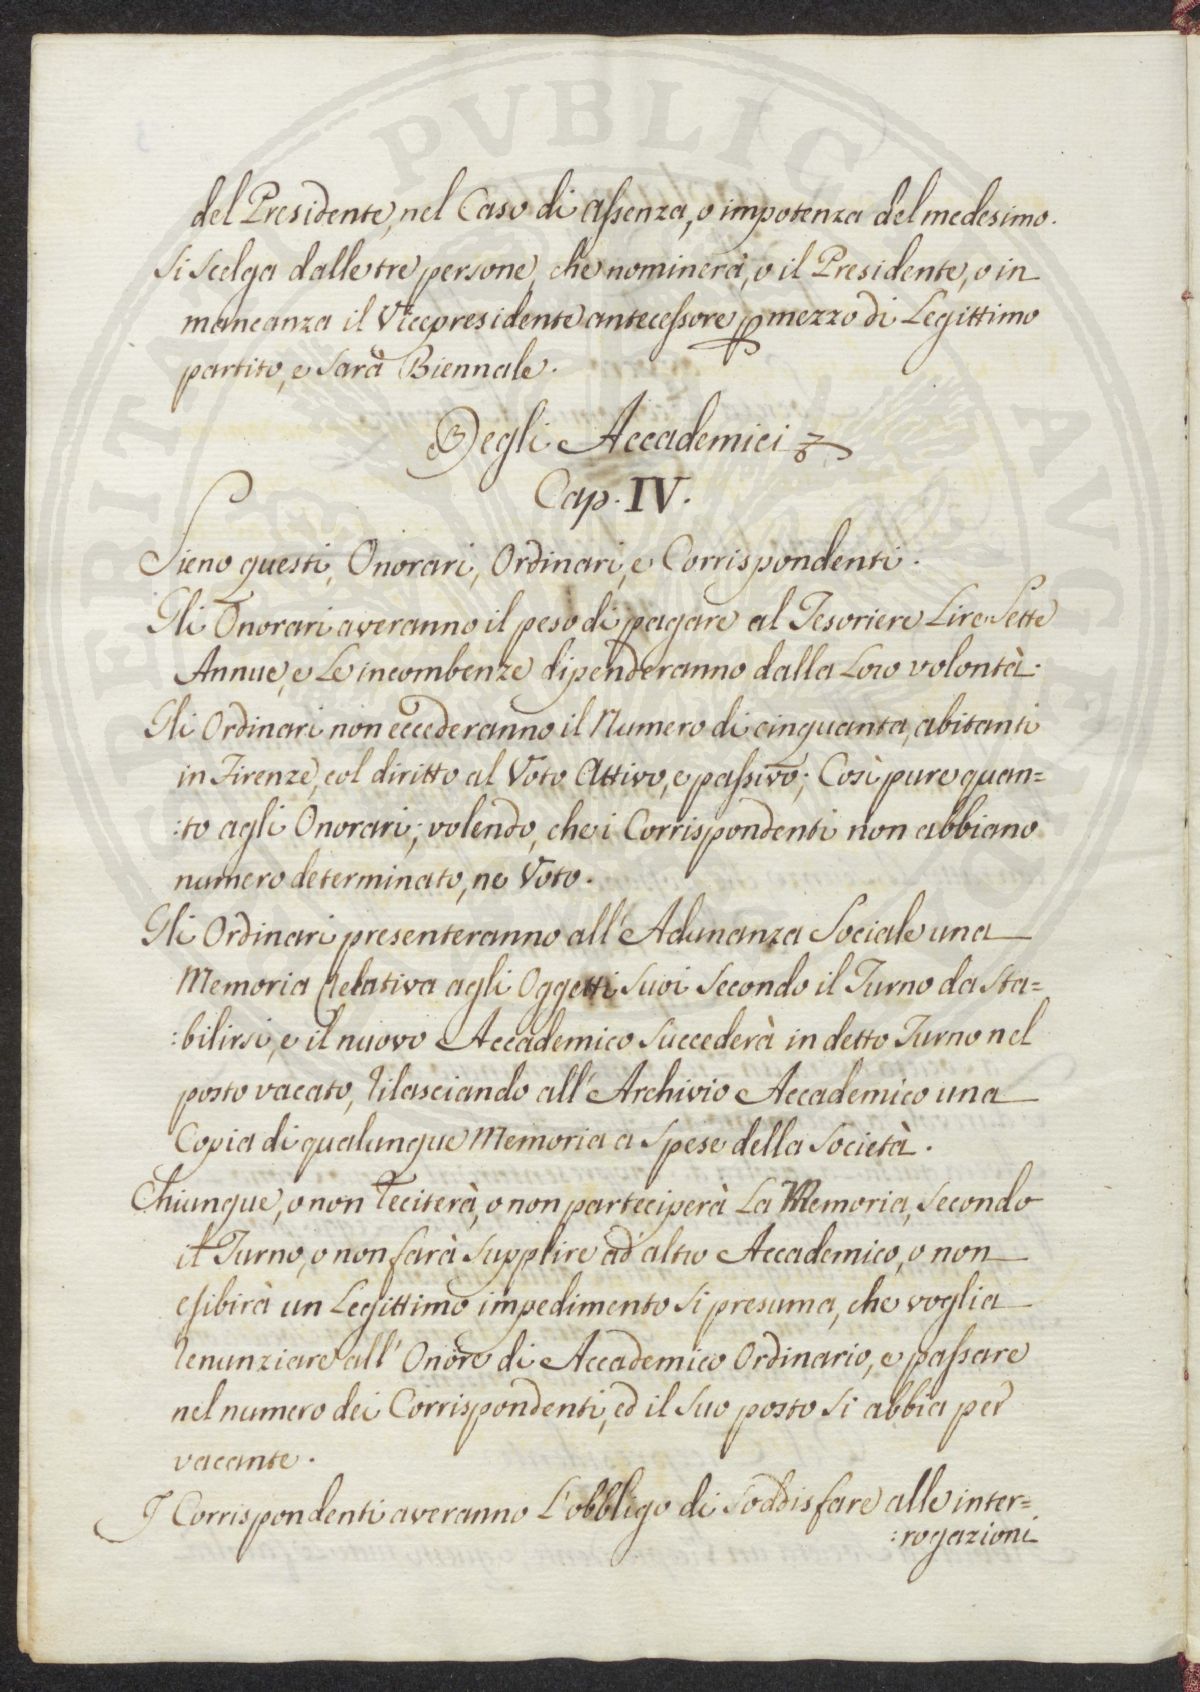 del Presidente, nel Caso di assenza, o impotenza del medesimo.
Si Scelga dalle tre persone, che nominerà, o il Presidente, o in
mancanza il Vicepresidente antecessore p mezzo di Legittimo
partito, e Sarà Biennale.
Degli Accademici
Cap. IV.
Sieno questi, Onorari, Ordinari, e Corrispondenti.
Gli Onorari averanno il peso di pagare al Tesoriere Lire Sette
Annue, e Le incombenze dipenderanno dalla Loro volontà.
Gli Ordinari non eccederanno il Numero di cinquanta, abitanti
in Firenze, col diritto al Voto Attivo, e passivo; Così pure quan=
:to agli Onorari; volendo, che i Corrispondenti non abbiano
numero determinato, ne Voto.
Gli Ordinari presenteranno all'Adunanza Sociale una
Memoria Relativa agli Oggetti Suoi Secondo il Turno da Sta=
:bilirsi, e il nuovo Accademico Succederà in detto Turno nel
posto vacato, Rilasciando all'Archivio Accademico una
Copia di qualunque Memoria a Spese della Società.
Chiunque, o non Reciterà, o non parteciperà La Memoria, Secondo
il Turno, o non farà Supplire ad altro Accademico, o non
esibirà un Legittimo impedimento Si presuma, che voglia
Renunziare all'Onore di Accademico Ordinario, e passare
nel numero dei Corrispondenti, ed il Suo posto Si abbia per
vacante.
I Corrispondenti averanno L'obbligo di Soddisfare alle inter=
:rogazioni
PVBLICAE
AVCTOR
PERITAT